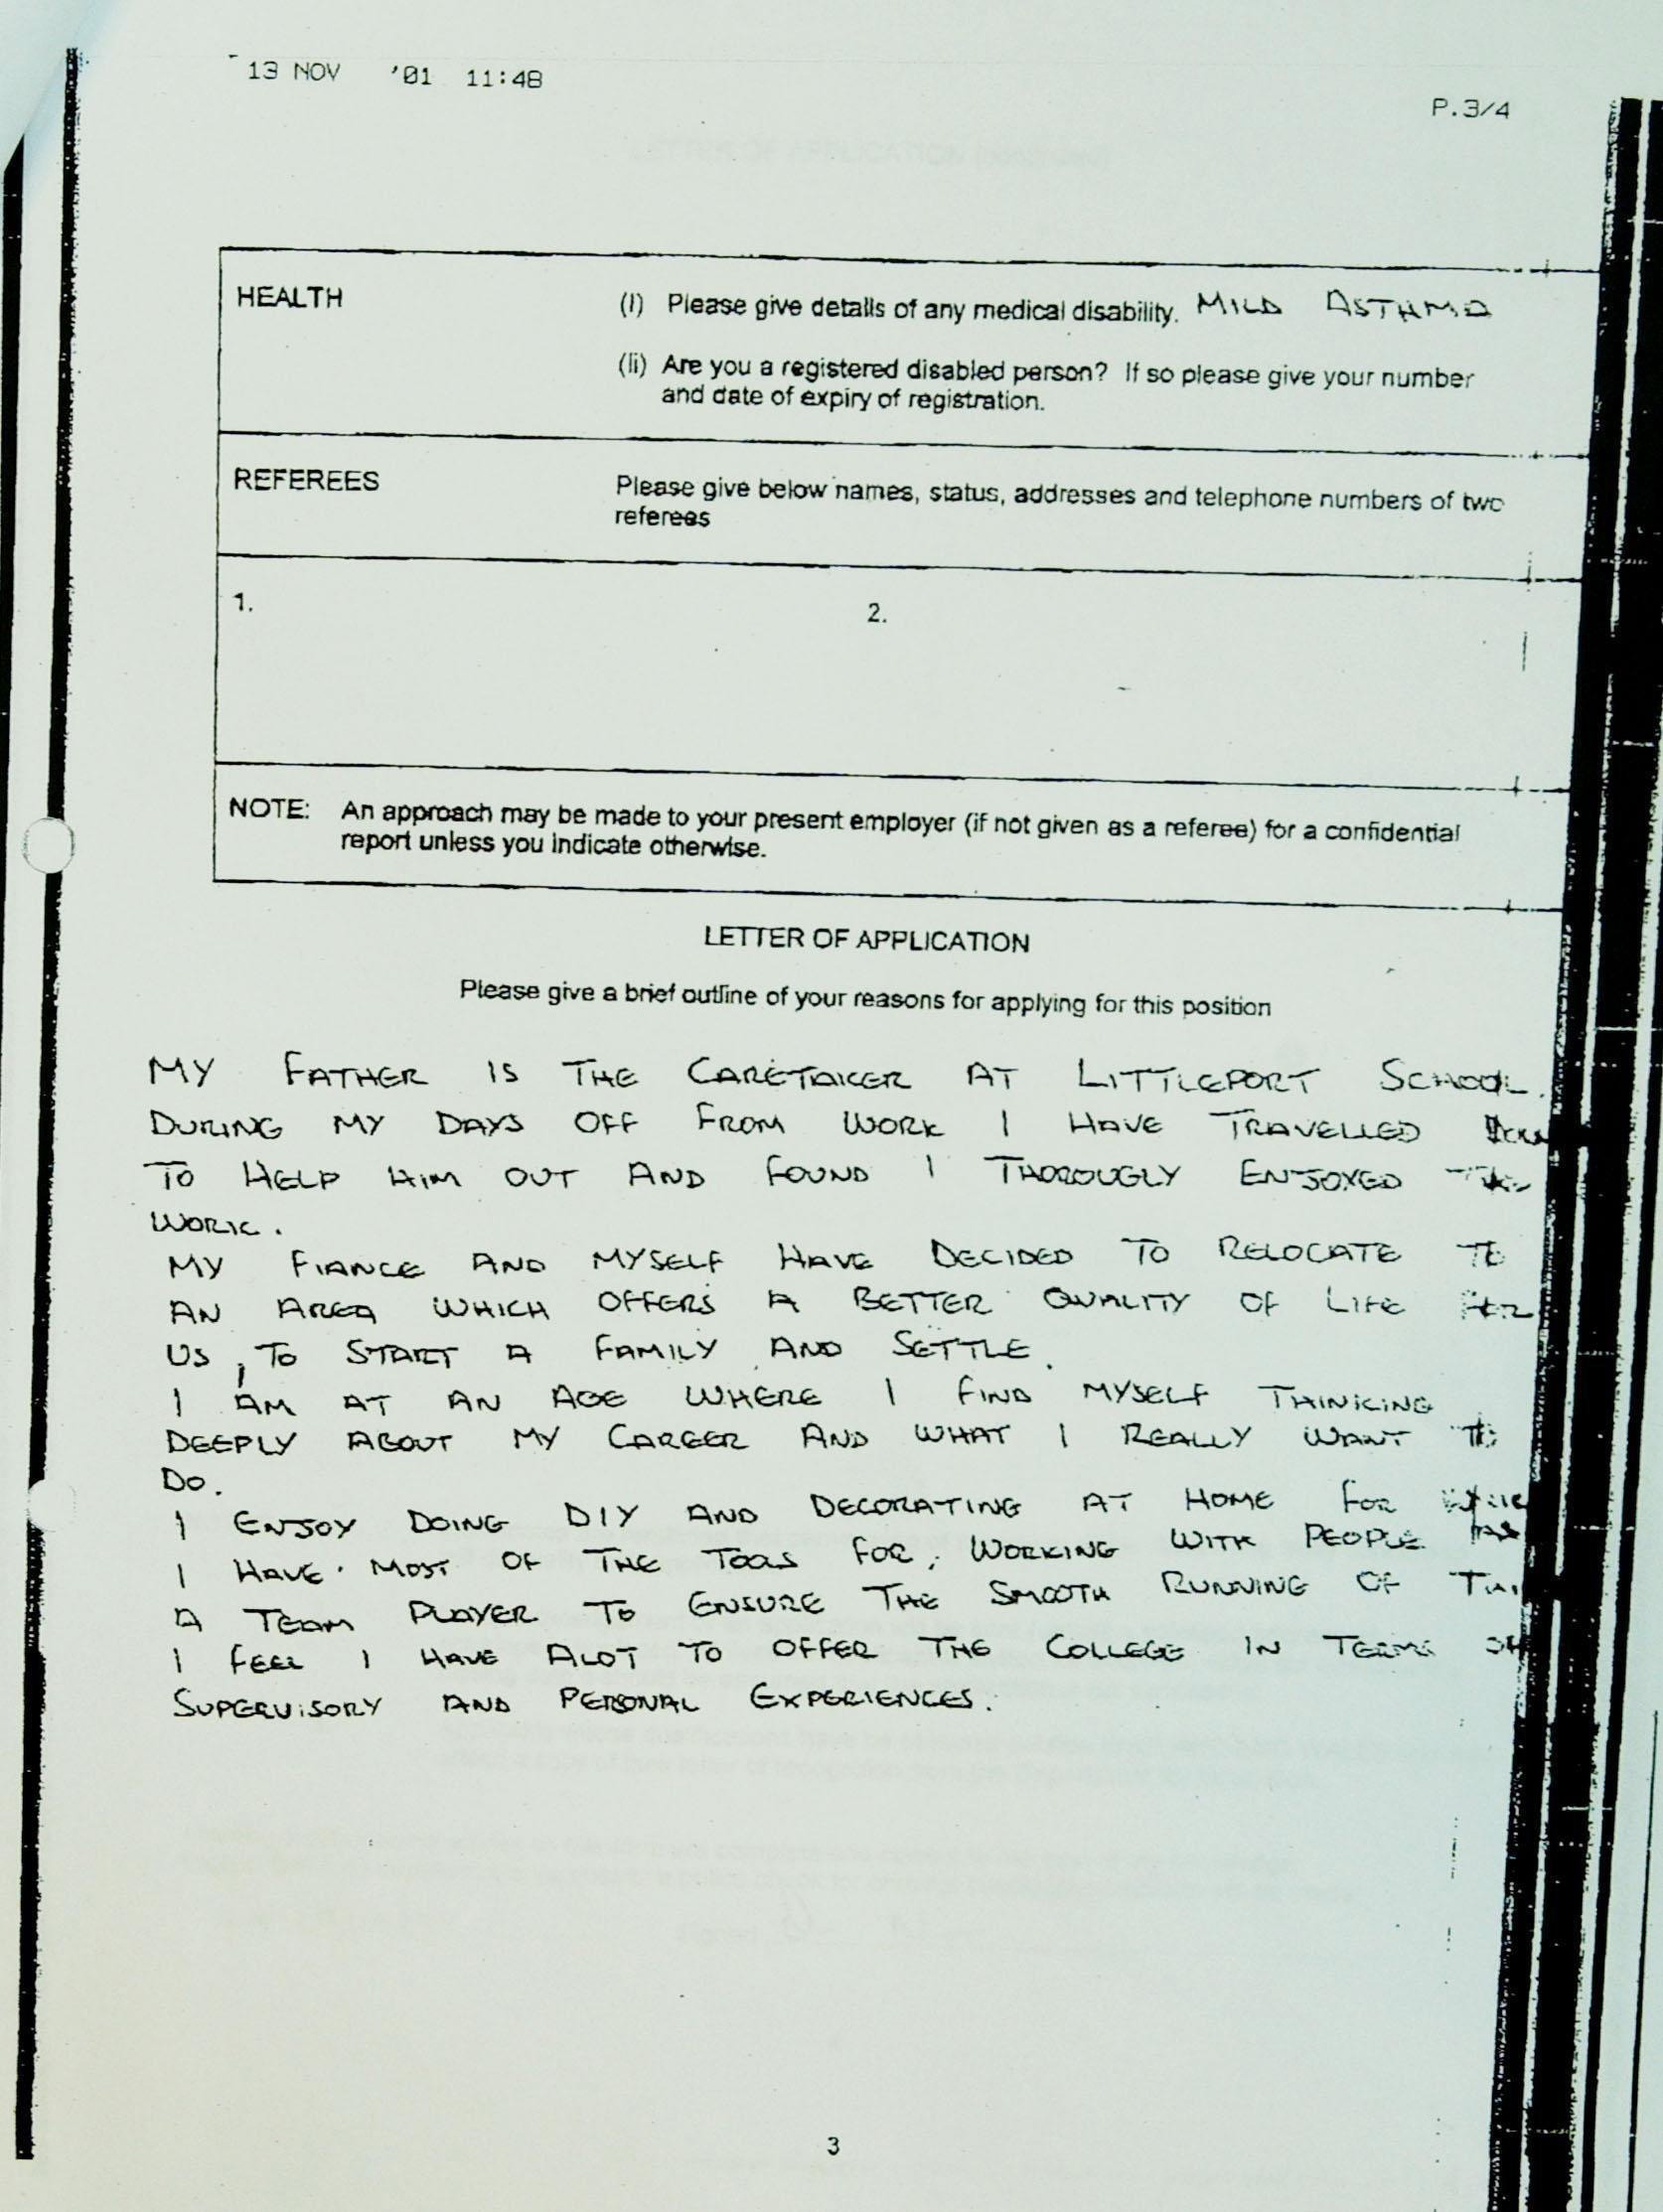 13 NOV '01 11:48
P.3/4
HEALTH
(i) Please give details of any medical disability. MILD ASTHMA
(ii) Are you a registered disabled person? If so please give your number
and date of expiry of registration.
REFEREES
Please give below names, status, addresses and telephone numbers of two
referees
1.
2.
NOTE: An approach may be made to your present employer (if not given as a referee) for a confidential
report unless you indicate otherwise.
LETTER OF APPLICATION
Please give a brief outline of your reasons for applying for this position
MY FATHER IS THE CARETAKER AT LITTLEPORT SCHOOL.
DURING MY DAYS OFF FROM WORK I HAVE TRAVELLED
TO HELP HIM OUT AND FOUND I THOROUGLY ENJOYED
WORK.
MY FIANCE AND MYSELF HAVE DECIDED TO RELOCATE TO
AN AREA WHICH OFFERS A BETTER QUALITY OF LIFE FOR
US, TO START A FAMILY AND SETTLE.
I AM AT AN AGE WHERE I FIND MYSELF THINKING
DEEPLY ABOUT MY CAREER AND WHAT I REALLY WANT TO
DO.
I ENJOY DOING DIY AND DECORATING AT HOME FOR
I HAVE MOST OF THE TOOLS FOR, WORKING WITH PEOPLE
A TEAM PLAYER TO ENSURE THE SMOOTH RUNNING OF
I FEEL I HAVE ALOT TO OFFER THE COLLEGE IN TERMS OF
SUPERVISORY AND PERSONAL EXPERIENCES.
3